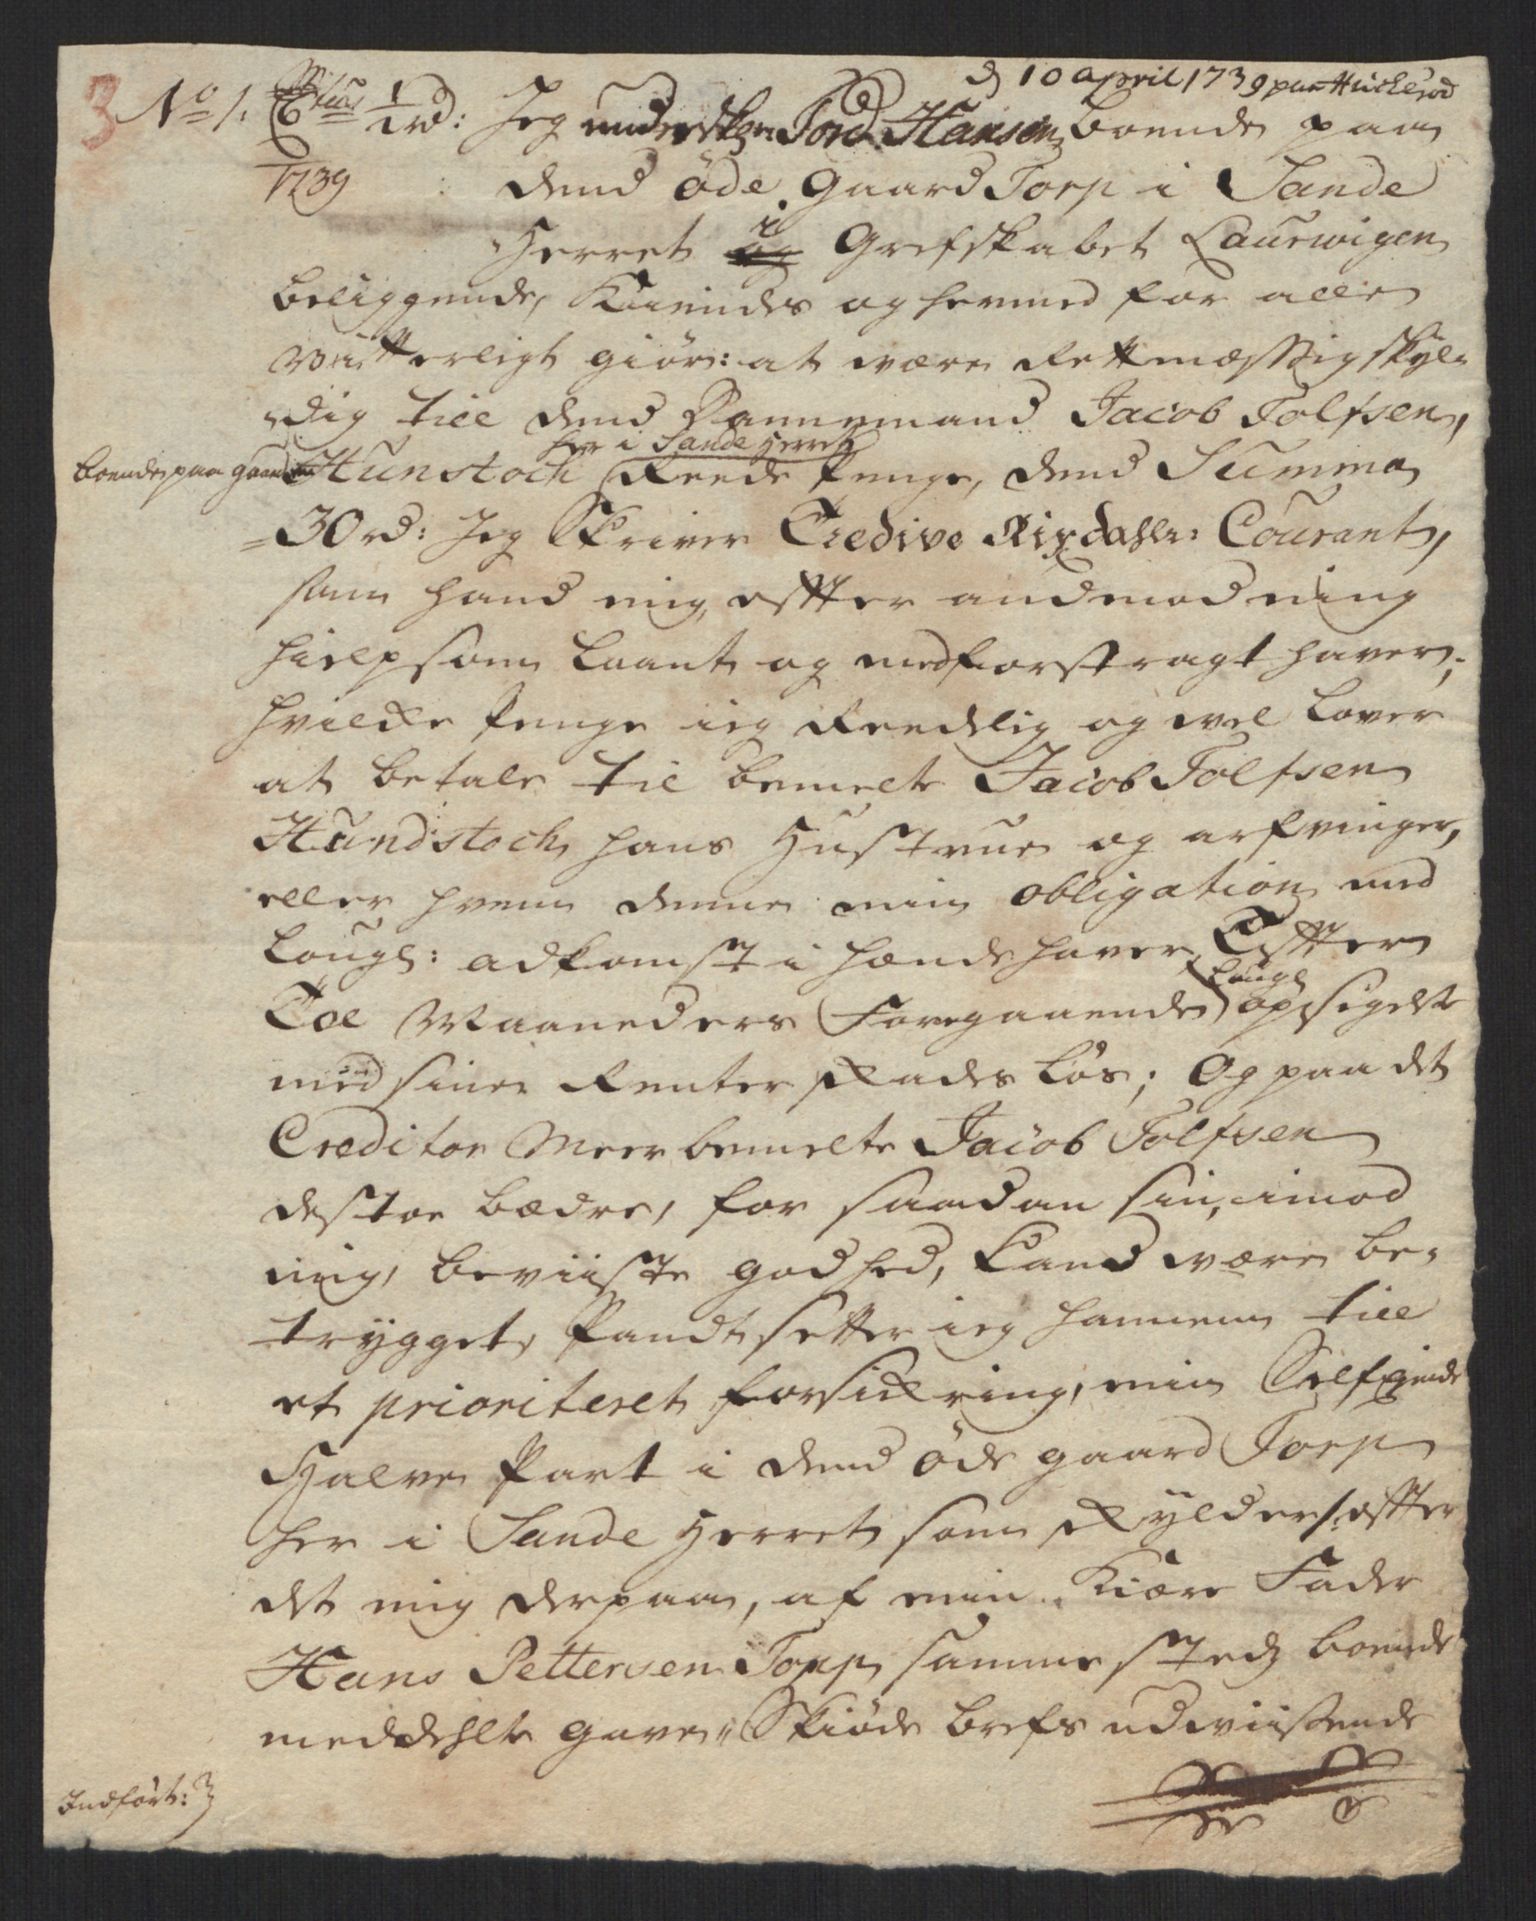 d 10 april 1739 paa Huchesrød
3 No 1. Ctus 1/2 rd: Jeg undersk: Tord Hansen boende paa
1739 dend øde Gaard Torp i Sande
Herret i Grefskabet Laurwigen
beliggende, Kiendes og hermed for alle
witterligt giør: at være Rettmæssig skyl-
dig till dend Dannemand Jacob Tolfsen,
boende paa gaarden Hunstoch her i Sande Herret Reede Penge, dend Summa
30 rd: Jeg Skriver Tredive Rixdahlr: Courant,
som hand mig, effter andmodning
hielpsom laant og medforstragt haver;
hvilke Penge ieg Reedelig og vel lover
at betale til bemelte Jacob Tolfsen
Hundstoch, hans Hustrue og arfvinger,
eller hvem denne min obligation med
lougl: adkomst i hænde haver, Effter
Tol Maaneders Foregaaende lougl opsigelse
med sine Renter skades løs; Og paa det
Creditor Meer bemelte Jacob Tolfsen
destoe bædre, for saadan sin, imod
mig, beviiste godhed, kand være be-
trygget, Pandtsetter ieg hannem till
et prioriteret forsikring, min Selfejende
Halve Part i dend øde gaard Torp
her i Sande Herret som skylder /: effter
det mig derpaa, af min Kiære Fader
Hans Pettersen Torp, samme sted boende
meddehlte gave- Skiøde brefs udwiissende
Indført: